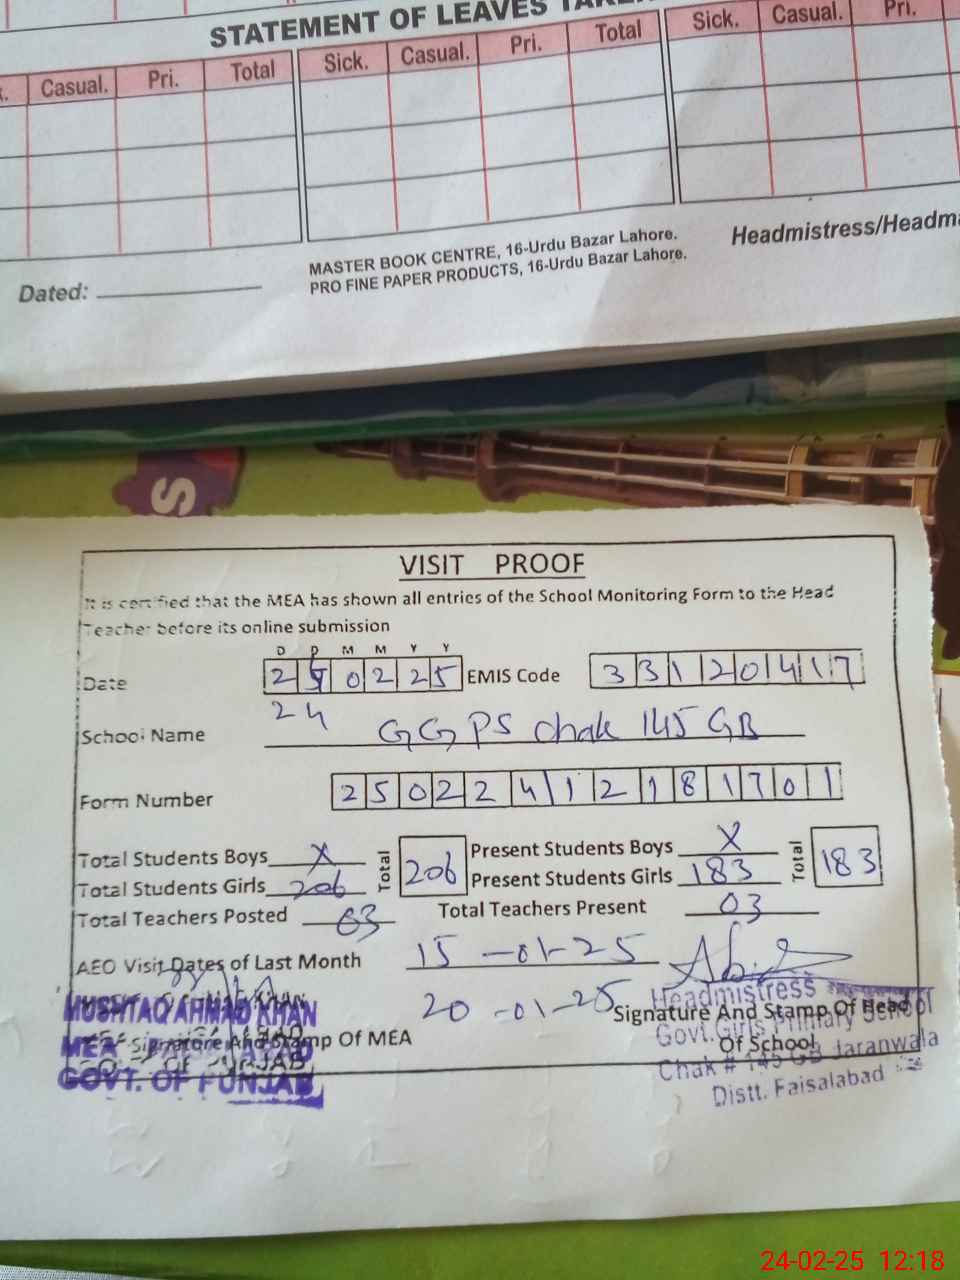 STATEMENT OF LEAVES
Casual. Pri. Total Sick. Casual. Pri. Total Sick. Casual. Pri.
MASTER BOOK CENTRE, 16-Urdu Bazar Lahore.
PRO FINE PAPER PRODUCTS, 16-Urdu Bazar Lahore.
Headmistress/Headma
Dated:
S
VISIT PROOF
It is certified that the MEA has shown all entries of the School Monitoring Form to the Head
Teacher before its online submission
D D M M Y Y
Date 2 0 2 2 5 EMIS Code 3 3 1 2 0 4 1 7
24
School Name GGPS chak 145 GB
Form Number 2 5 0 2 2 4 1 2 1 8 1 7 0 1
Total Students Boys X Total 206 Present Students Boys X Total 183
Total Students Girls 206 Present Students Girls 183
Total Teachers Posted 03 Total Teachers Present 03
AEO Visit Dates of Last Month 15-01-25
20-01-25
Signature And Stamp Of Head
Of School
Signature And Stamp Of MEA
MUSHTAQ AHMAD KHAN
MEA
GOVT. OF PUNJAB
Headmistress
Govt. Girls Primary School
Chak # 145 GB Jaranwala
Distt. Faisalabad
24-02-25 12:18